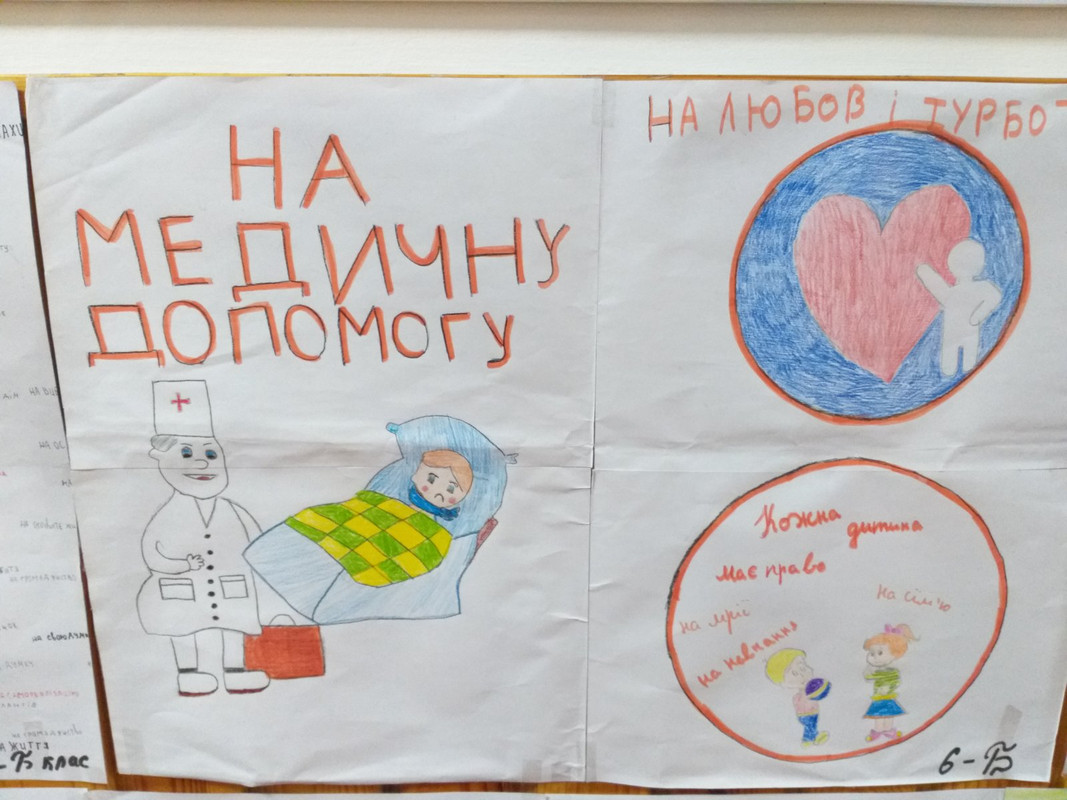 НА
МЕДИЧНУ
ДОПОМОГУ
НА ЛЮБОВ І ТУРБОТ
Кожна дитина
має право
на мрії
на сім'ю
на навчання
6-Б
на своє
НА ЖИТТЯ
-Б клас